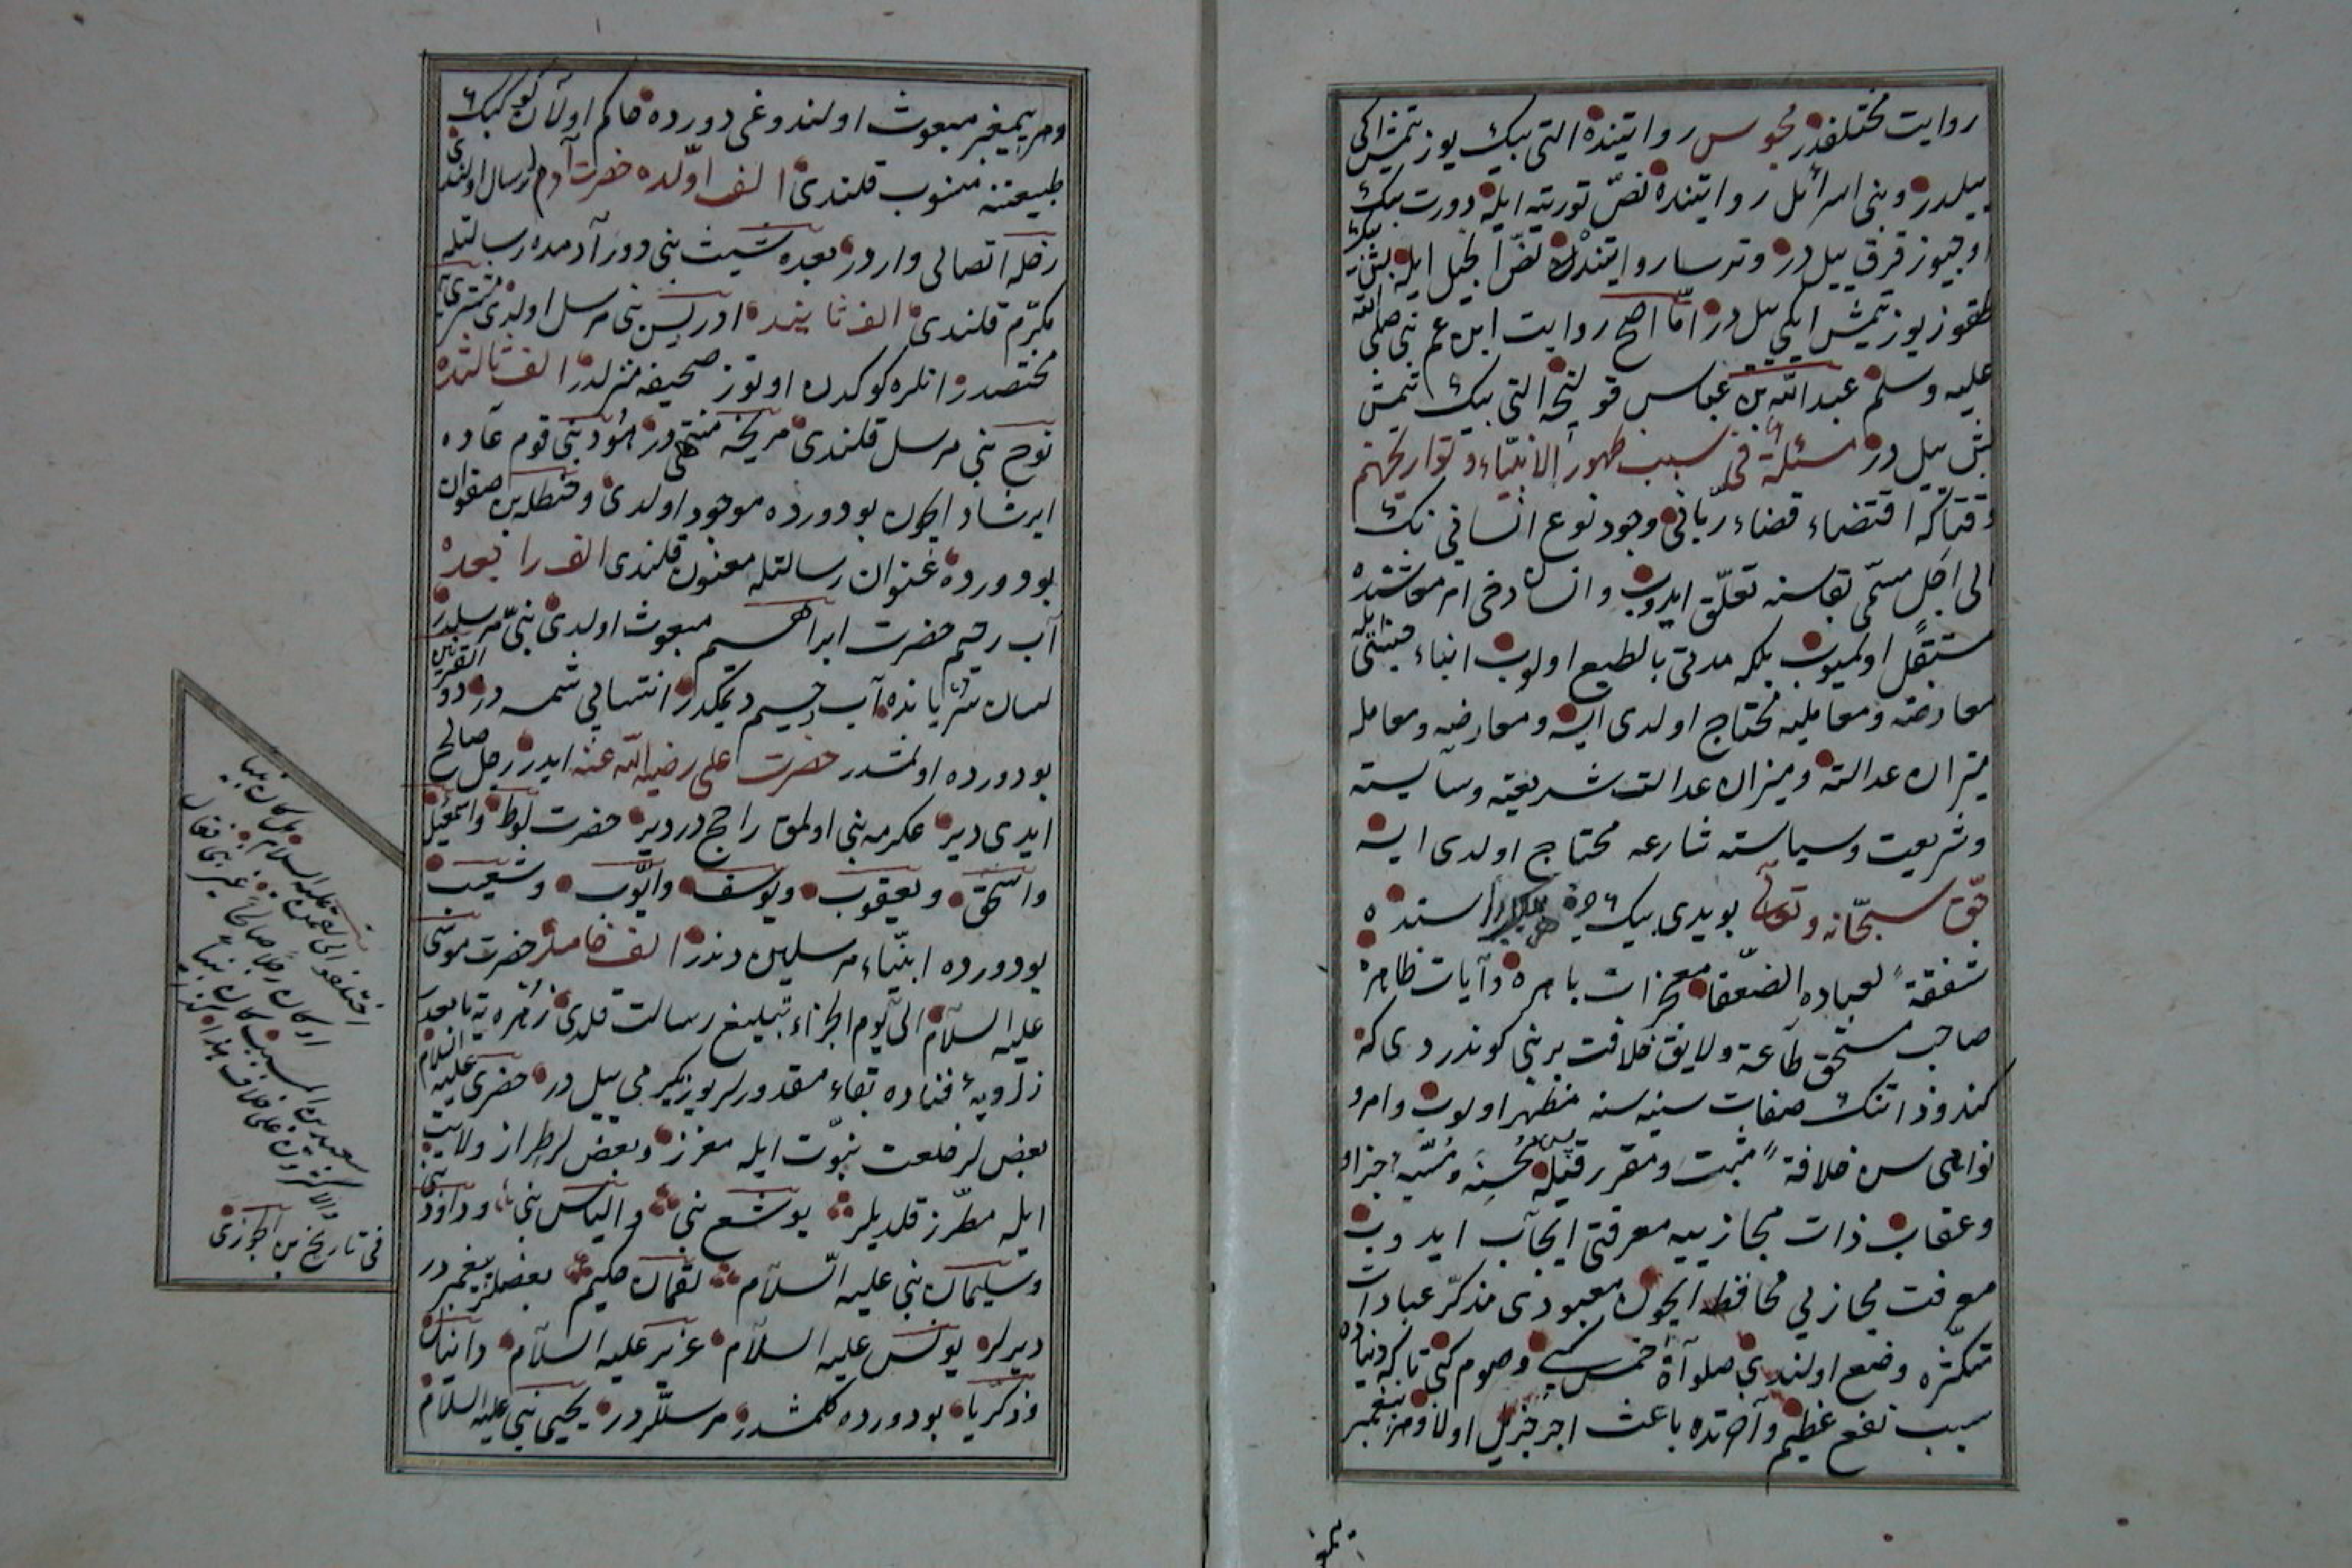 روايت مختلفدر مجوس روايتنده التى بيك يوز يتمش ايكى
ييلدر وبنى اسرائل روايتنده نصّ توريته ايله دورت بيك
اوچيوز قرق ييل در وترسا روايتنده نصّ انجيل ايله بش بيك
طقوز يوز يتمش ايكى ييل در امّا اصح روايت ابن عم نبى صلى الله
عليه وسلم عبد الله بن عباس قولنجه التى بيك يتمش
بش ييل در مسئلة فى سبب ظهور الانبيّاء وتواريخهم
وقتاكه اقتضاء قضاء ربّانى وجود نوع انسانى نك
الى اجل مسمّى بقاسنه تعلّق ايدوب وانسان دخى امر معاشنده
مستقل اولميوب بلكه مدنى بالطبع اولوب ابناء جنسى ايله
معارضه ومعامليه محتاج اولدى ايسه ومعارضه ومعامله
ميزان عدالته وميزان عدالت شريعته وسياسته
وشريعت وسياسته شارعه محتاج اولدى ايسه
حق سبحانه وتعالى بو يدى بيك استنده
شفقة لعباده الضعفا معجزات باهره وآيات ظاهره
صاحب مستحق طاعة ولايق خلافت بر نبى كوندردى كه
كندو ذاتنك صفات سنيه سنه مظهر اولوب وامر و
نواهى سن خلافة مثبت ومقرر قيله محسنه ومسيه اجزا
وعقاب ذات مجازييه معرفتى ايجاب ايدوب
معرفت مجازيى محافظه ايچون معبودى مذكّر عبادات
متكثره وضع اولندى صلوآة خمس كبى وصوم كبى تاكه دنياده
سبب نفع عظيم وآخرتده باعث اجر جزيل اولا وهر پيغمبر
يمغبر
وهر پيمغبر مبعوث اولندوغى دورده حاكم اولان كوكبك
طبيعتنه منسوب قلندى الف اوّلده حضرت آدم ارسال اولندى
زحله اتصالى واردر بعده شيث نبى دور آدمده رسالتله
مكرّم قلندى الف ثانيده ادريس نبى مرسل اولدى مشترى يه
مختصدر انلره كوكدن اوتوز صحيفه منزلدر الف ثالثده
نوح نبى مرسل قلندى مريخه منتمى در هود نبى قوم عاده
ايرشاد ايچون بو دورده موجود اولدى وحنظله بن صفوان
بو دورده عنوان رسالتله معنون قلندى الف رابعده
آب رحيم حضرت ابراهيم مبعوث اولدى نبىّ مرسلدر
لسان سريانده آب رحيم ديمكدر انتسابى شمسه در ذو القرنين
بو دورده اولمشدر حضرت على رضى الله عنه ايدر رجل صالح
ايدى دير عكرمه نبى اولمق راجح در دير حضرت لوط واسمعيل
واسحق ويعقوب ويوسف وايّوب وشعيب
بو دورده انبيّاء مرسلين دندر الف خامسده حضرت موسى
عليه السلام الى يوم الجزاء تبليغ رسالت قلدى زهره يه تابعدر
زاويۀ فناده بقاء مقدورلر يوز يكرمى ييل در حضرى عليه السلام
بعض لر خلعت نبوّت ايله معزز وبعض لر طراز ولايت
ايله مطرّز قلديلر يوشع نبى والياس نبى وداود نبى
وسليمان نبى عليه السّلام لقمان حكيم بعضلر پيغمبر در
ديرلر يونس عليه السلام عزير عليه السلام دانيال
وذكريا بو دورده كلمشدر مرسللر در يحيى نبى عليه السلام
اختلفوا فى لقمان عليه السلام هل كان نبيا
او كان رجلا صالحا غير نبى فقال
سعيد بن المسيب كان نبيا
والاكثرون على خلاف هذا كذا
فى تاريخ بن الجوزى